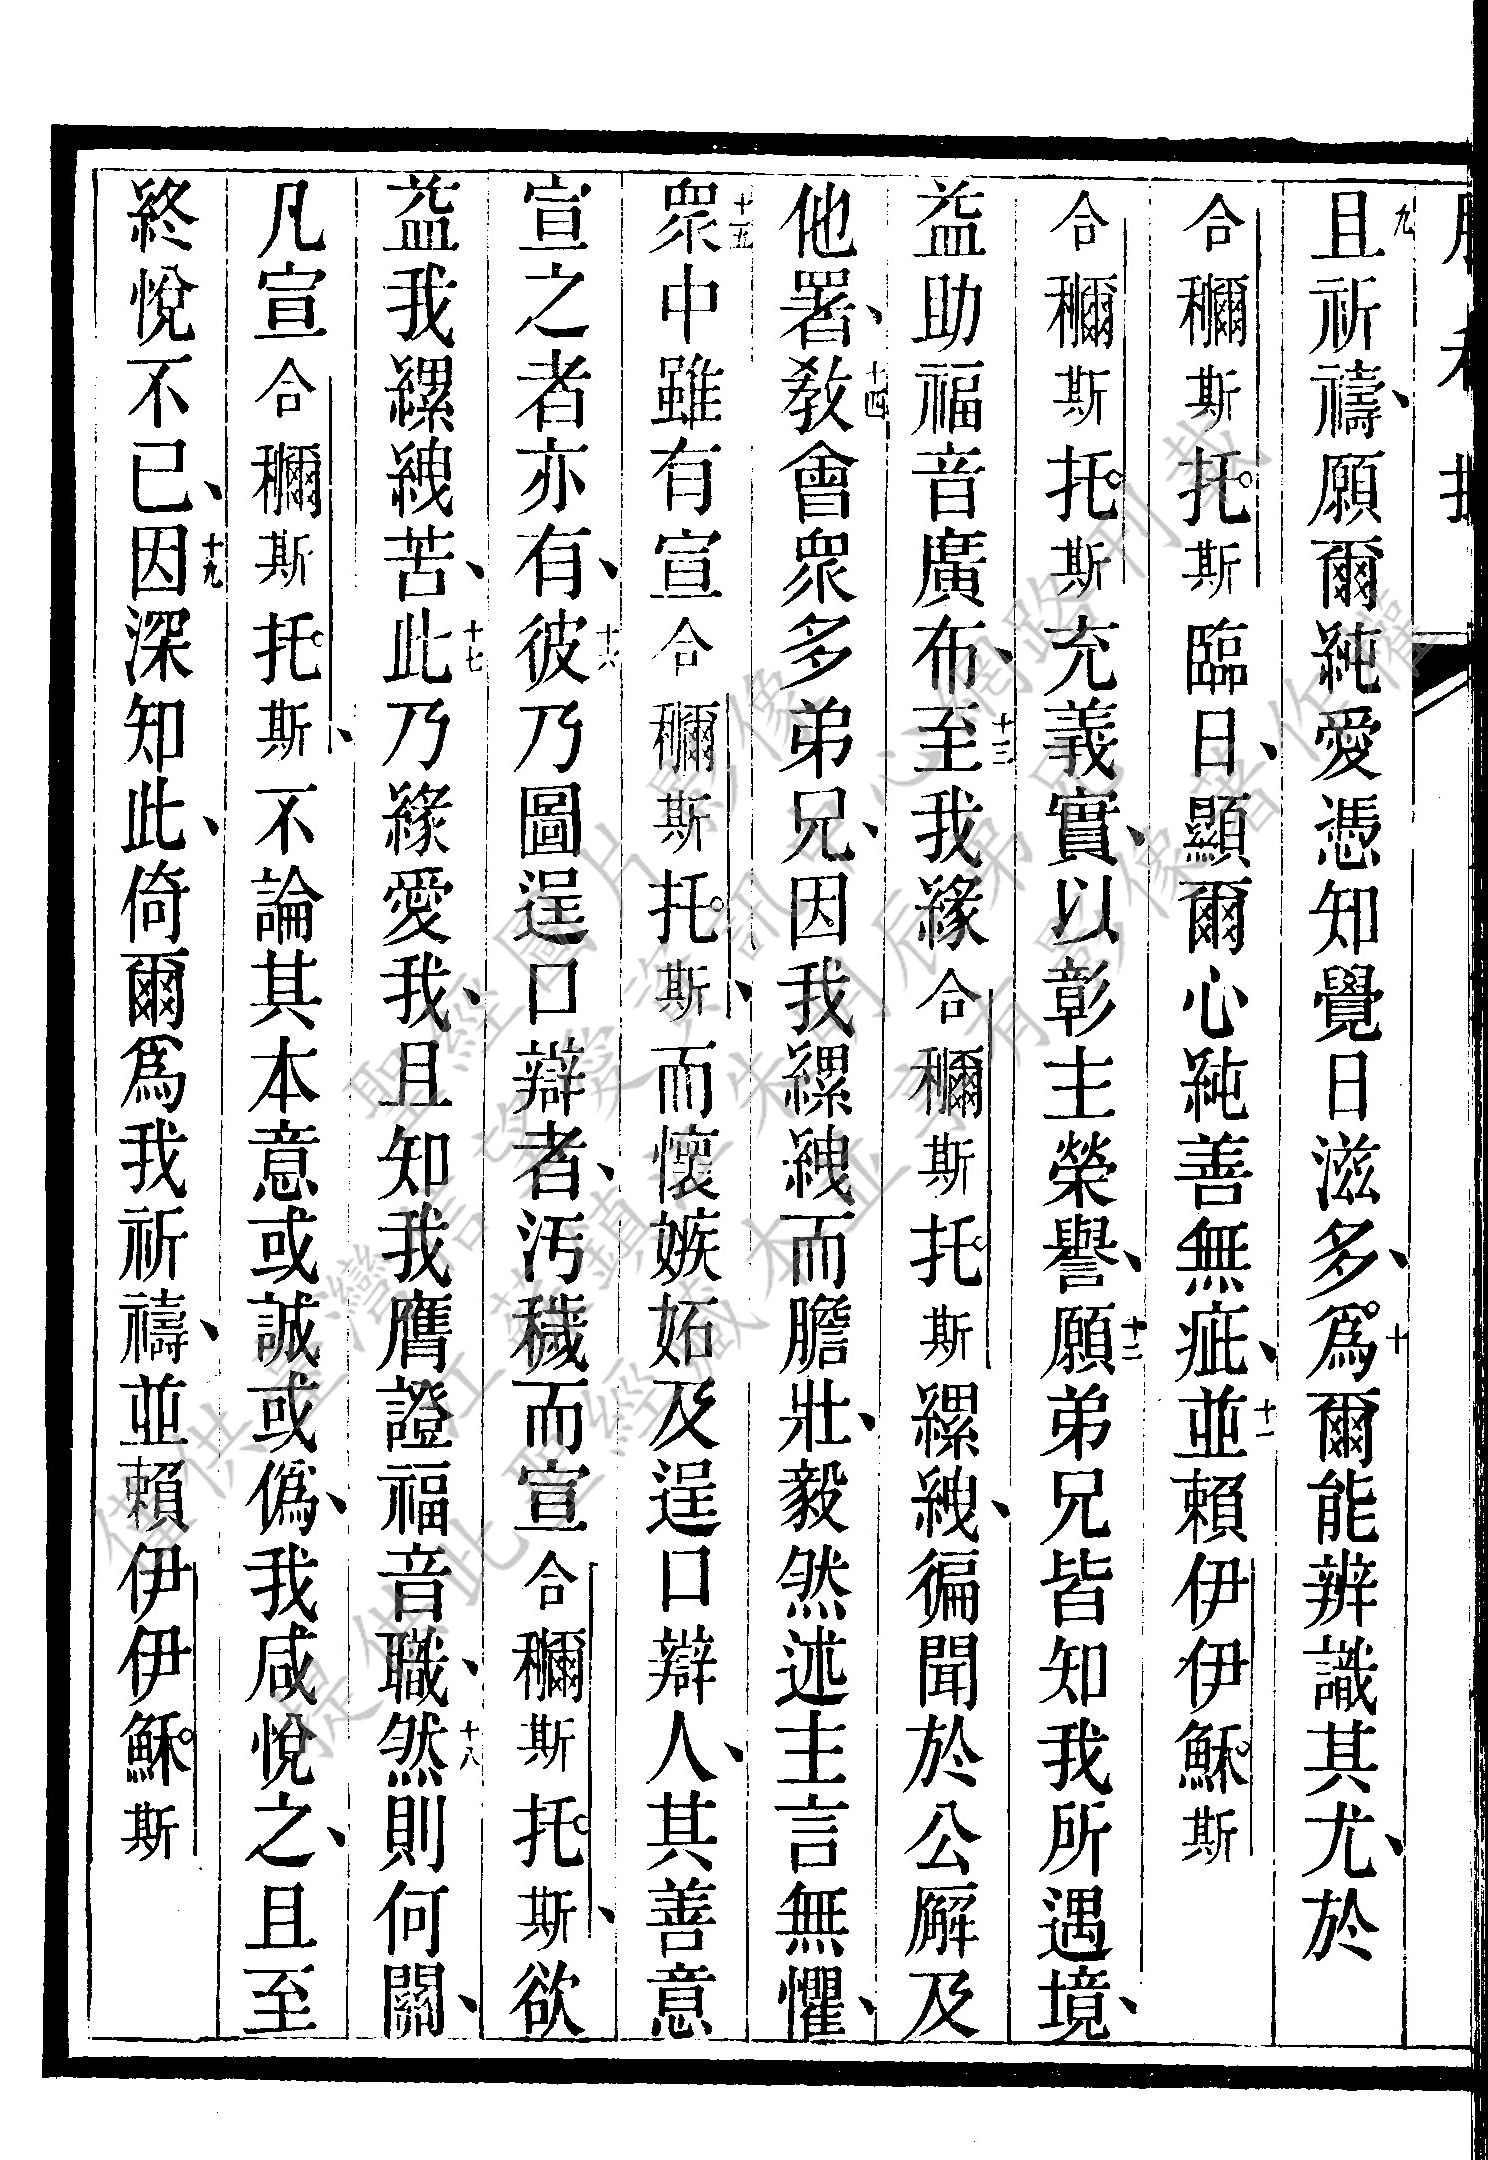 九且祈禱、願爾純愛憑知覺日滋多、十爲爾能辨識其尤、於
合穪斯托斯臨日、顯爾心純善無疵、十一並賴伊伊穌斯
合穪斯托斯充義實、以彰主榮譽、十二願弟兄皆知我所遇境、
益助福音廣布、十三至我緣合穪斯托斯縲絏、徧聞於公廨及
他署、十四教會眾多弟兄、因我縲絏而膽壯、毅然述主言無懼、
十五眾中雖有宣合穪斯托斯、而懷嫉妬及逞口辯人、其善意
宣之者亦有、十六彼乃圖逞口辯者、汚穢而宣合穪斯托斯、欲
益我縲絏苦、十七此乃緣愛我、且知我膺證福音職、十八然則何關、
凡宣合穪斯托斯、不論其本意或誠或僞、我咸悅之、且至
終悅不已、十九因深知此、倚爾爲我祈禱、並賴伊伊穌斯
聖經圖片影像
僅供台灣信望愛資訊中心網路刊載